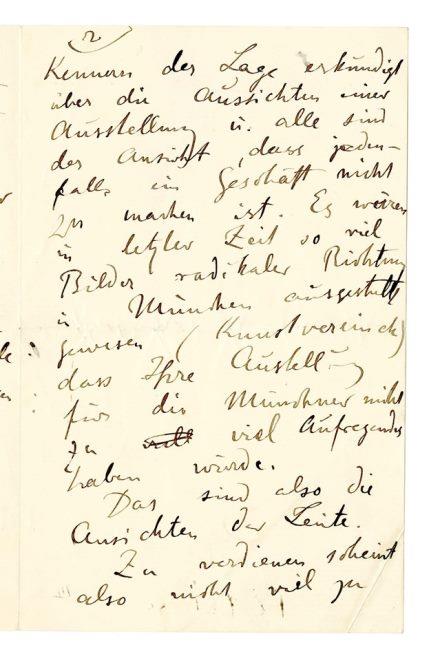 2
Kennern der Lage erkundigt
über die Aussichten einer
Ausstellung u. alle sind
der Ansicht, dass jeden-
falls ein Geschäft nicht
zu machen ist. Es wären
in letzter Zeit so viel
Bilder radikaler Richtung
in München ausgestellt
gewesen (Kunstverein etc)
dass Ihre Ausstellung
für die Münchner nicht
zu viel Aufregendes
haben würde.
Das sind also die
Ansichten der Leute.
Zu verdienen scheint
also nicht viel zu